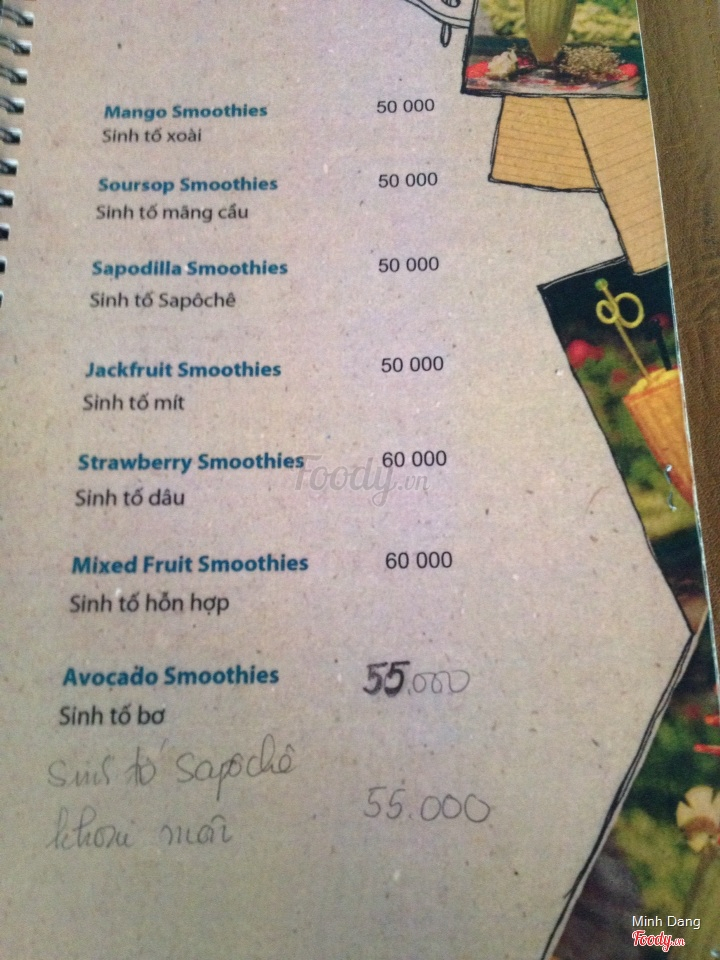 Mango Smoothies 50 000
Sinh tố xoài
Soursop Smoothies 50 000
Sinh tố mãng cầu
Sapodilla Smoothies 50 000
Sinh tố Sapôchê
Jackfruit Smoothies 50 000
Sinh tố mít
Strawberry Smoothies 60 000
Foody.vn
Sinh tố dâu
Mixed Fruit Smoothies 60 000
Sinh tố hỗn hợp
Avocado Smoothies 55.000
Sinh tố bơ
Sinh tố Sapôchê
55.000
Minh Dang
Foody.vn